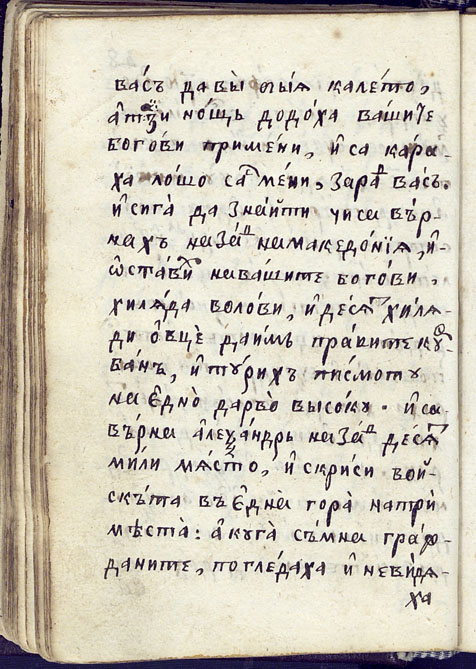 ва́съ да вы̀ ѹмы́я кале́то,
а҆ тꙋ́зи но́щь додо́ха ва́шиѣ
бого́ви при ме́ни, и҆ са ка́ра-
ха ло́шо са ме́ни, зара́д ва́съ.
и҆ сига̀ да зна́йти чи са вѣ́р-
нахъ на за́д на македо́нїѧ, и҆
ѡ҆ста́ви на ва́шите бого́ви,
хилѧ́да воло́ви, и҆ де́сѧт хи́лѧ-
ди ѻ҆́вце да и҆́мъ пра́вите кꙋр-
ба́нъ, и҆ тꙋ́рихъ писмо́то
на є҆дно̀ да́рво высо́кꙋ. и҆ са
вѣ́рна а҆леѯа́ндръ на за́д де́сѧт
ми́ли мѧ́сто, и҆ скри́си вой-
скъ́та въ є҆дна̀ гора̀ на трѝ
мѣста̀: а҆ куга̀ съ́мна гра́ж-
даните, погле́даха и҆ не ви́дѧ-
ха